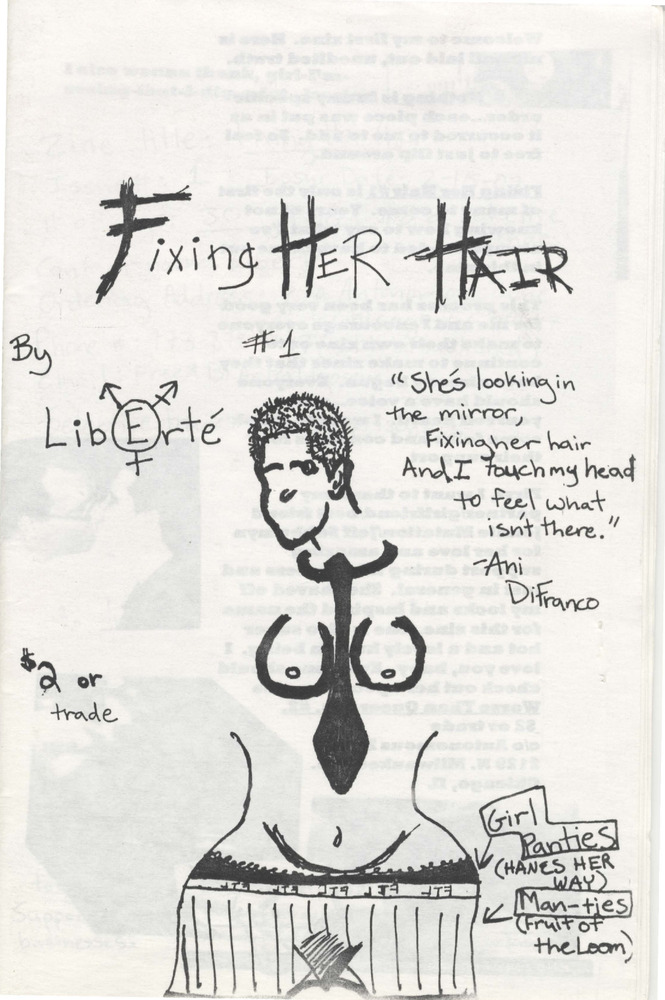 Fixing HER HAIR
#1
By
LibErté
"She's looking in
the mirror,
Fixing her hair
And I touch my head
to feel what
isn't there."
-Ani
DiFranco
$2 or
trade
Girl
Panties
(HANES HER
WAY)
Man-ties
(Fruit of
the Loom)
FTL FTL FTL FTL FTL